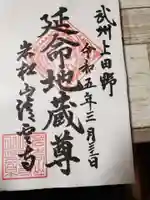 武州上田野
令和五年三月三日
延命地蔵尊
岩松山清雲寺